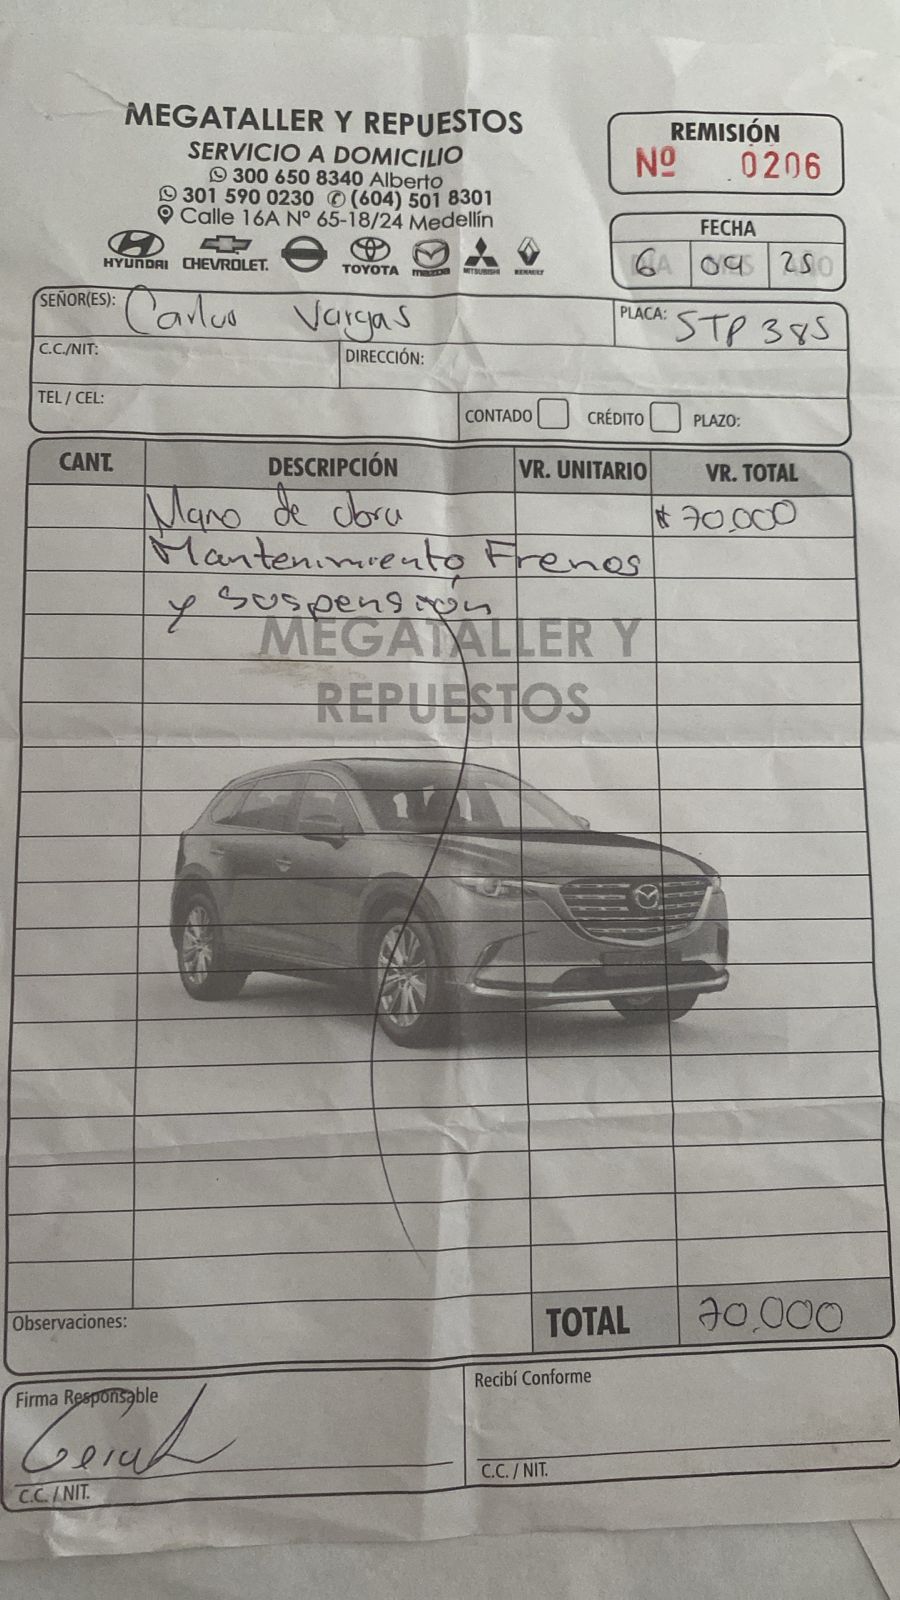 MEGATALLER Y REPUESTOS
SERVICIO A DOMICILIO
300 650 8340 Alberto
301 590 0230 (604) 501 8301
Calle 16A Nº 65-18/24 Medellín
HYUNDAI CHEVROLET. TOYOTA mazda MITSUBISHI RENAULT
REMISIÓN
Nº 0206
FECHA
6 09 25
SEÑOR(ES): Carlos Vargas
PLACA: STP 385
C.C./NIT:
DIRECCIÓN:
TEL / CEL:
CONTADO CRÉDITO PLAZO:
CANT. DESCRIPCIÓN VR. UNITARIO VR. TOTAL
Mano de obra $ 70,000
Mantenimiento Frenos
y suspensión
MEGATALLER Y
REPUESTOS
Observaciones:
TOTAL 70.000
Firma Responsable
C.C. / NIT.
Recibí Conforme
C.C. / NIT.